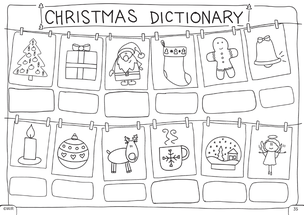 CHRISTMAS DICTIONARY